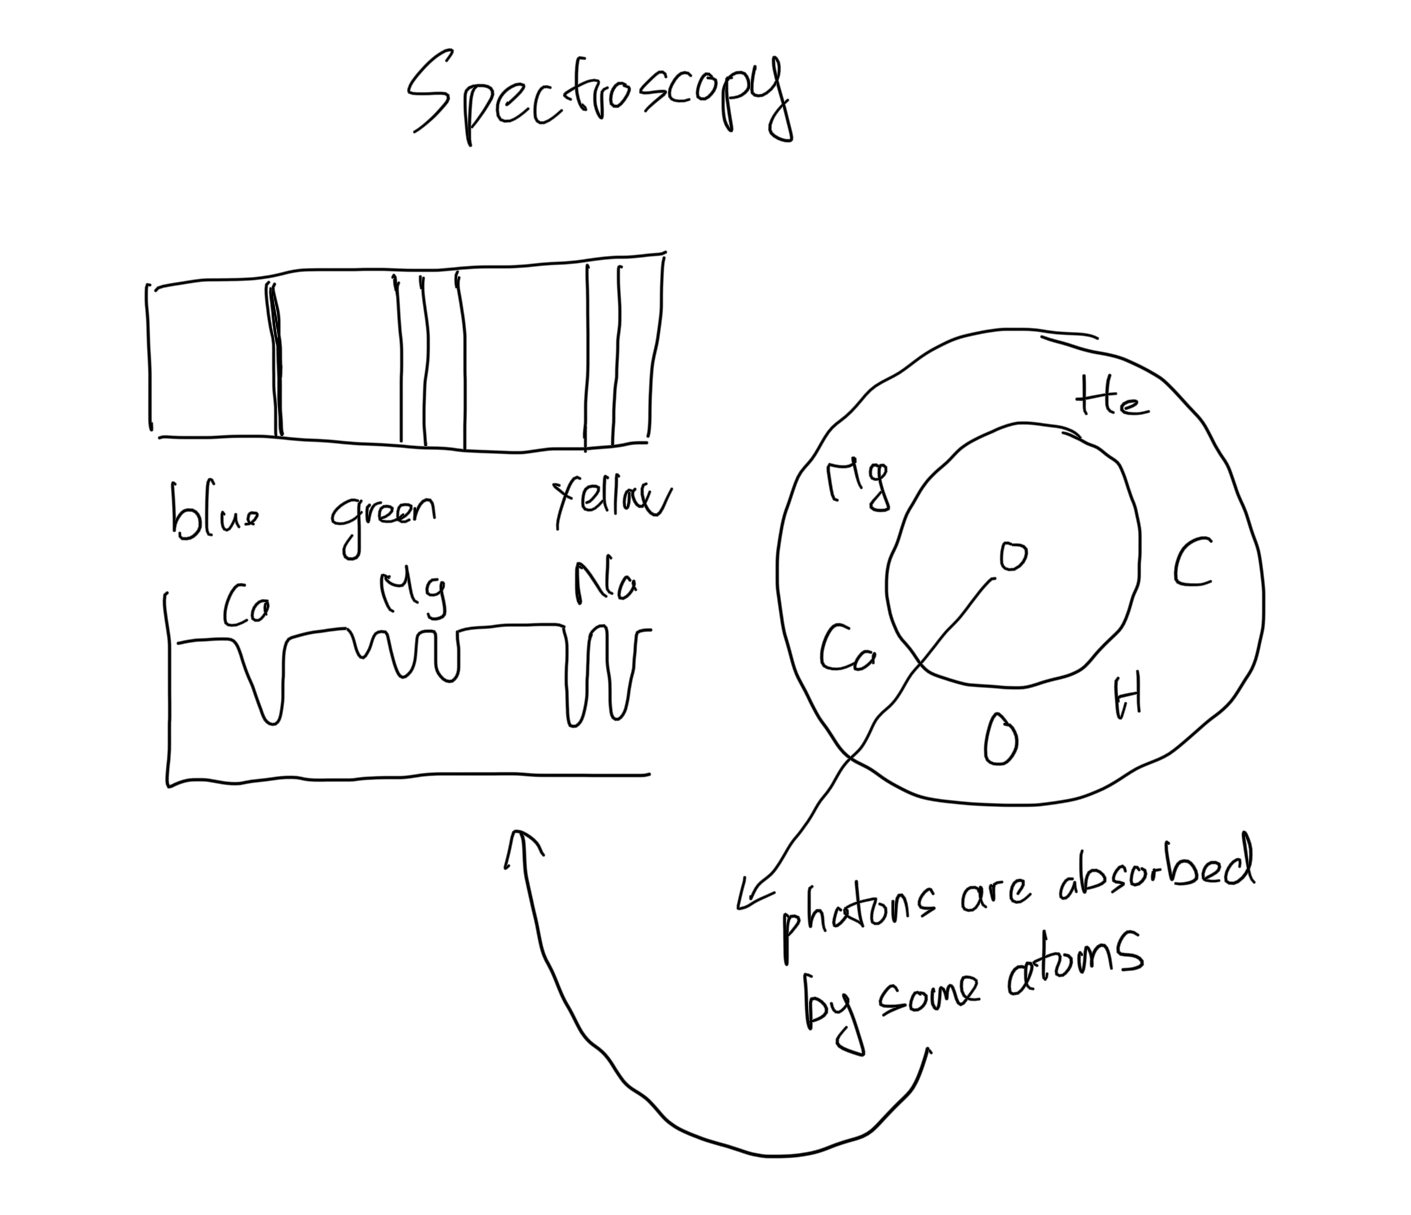 Spectroscopy
blue green yellow
Ca Mg Na
He
Mg
C
Ca
H
O
photons are absorbed
by some atoms